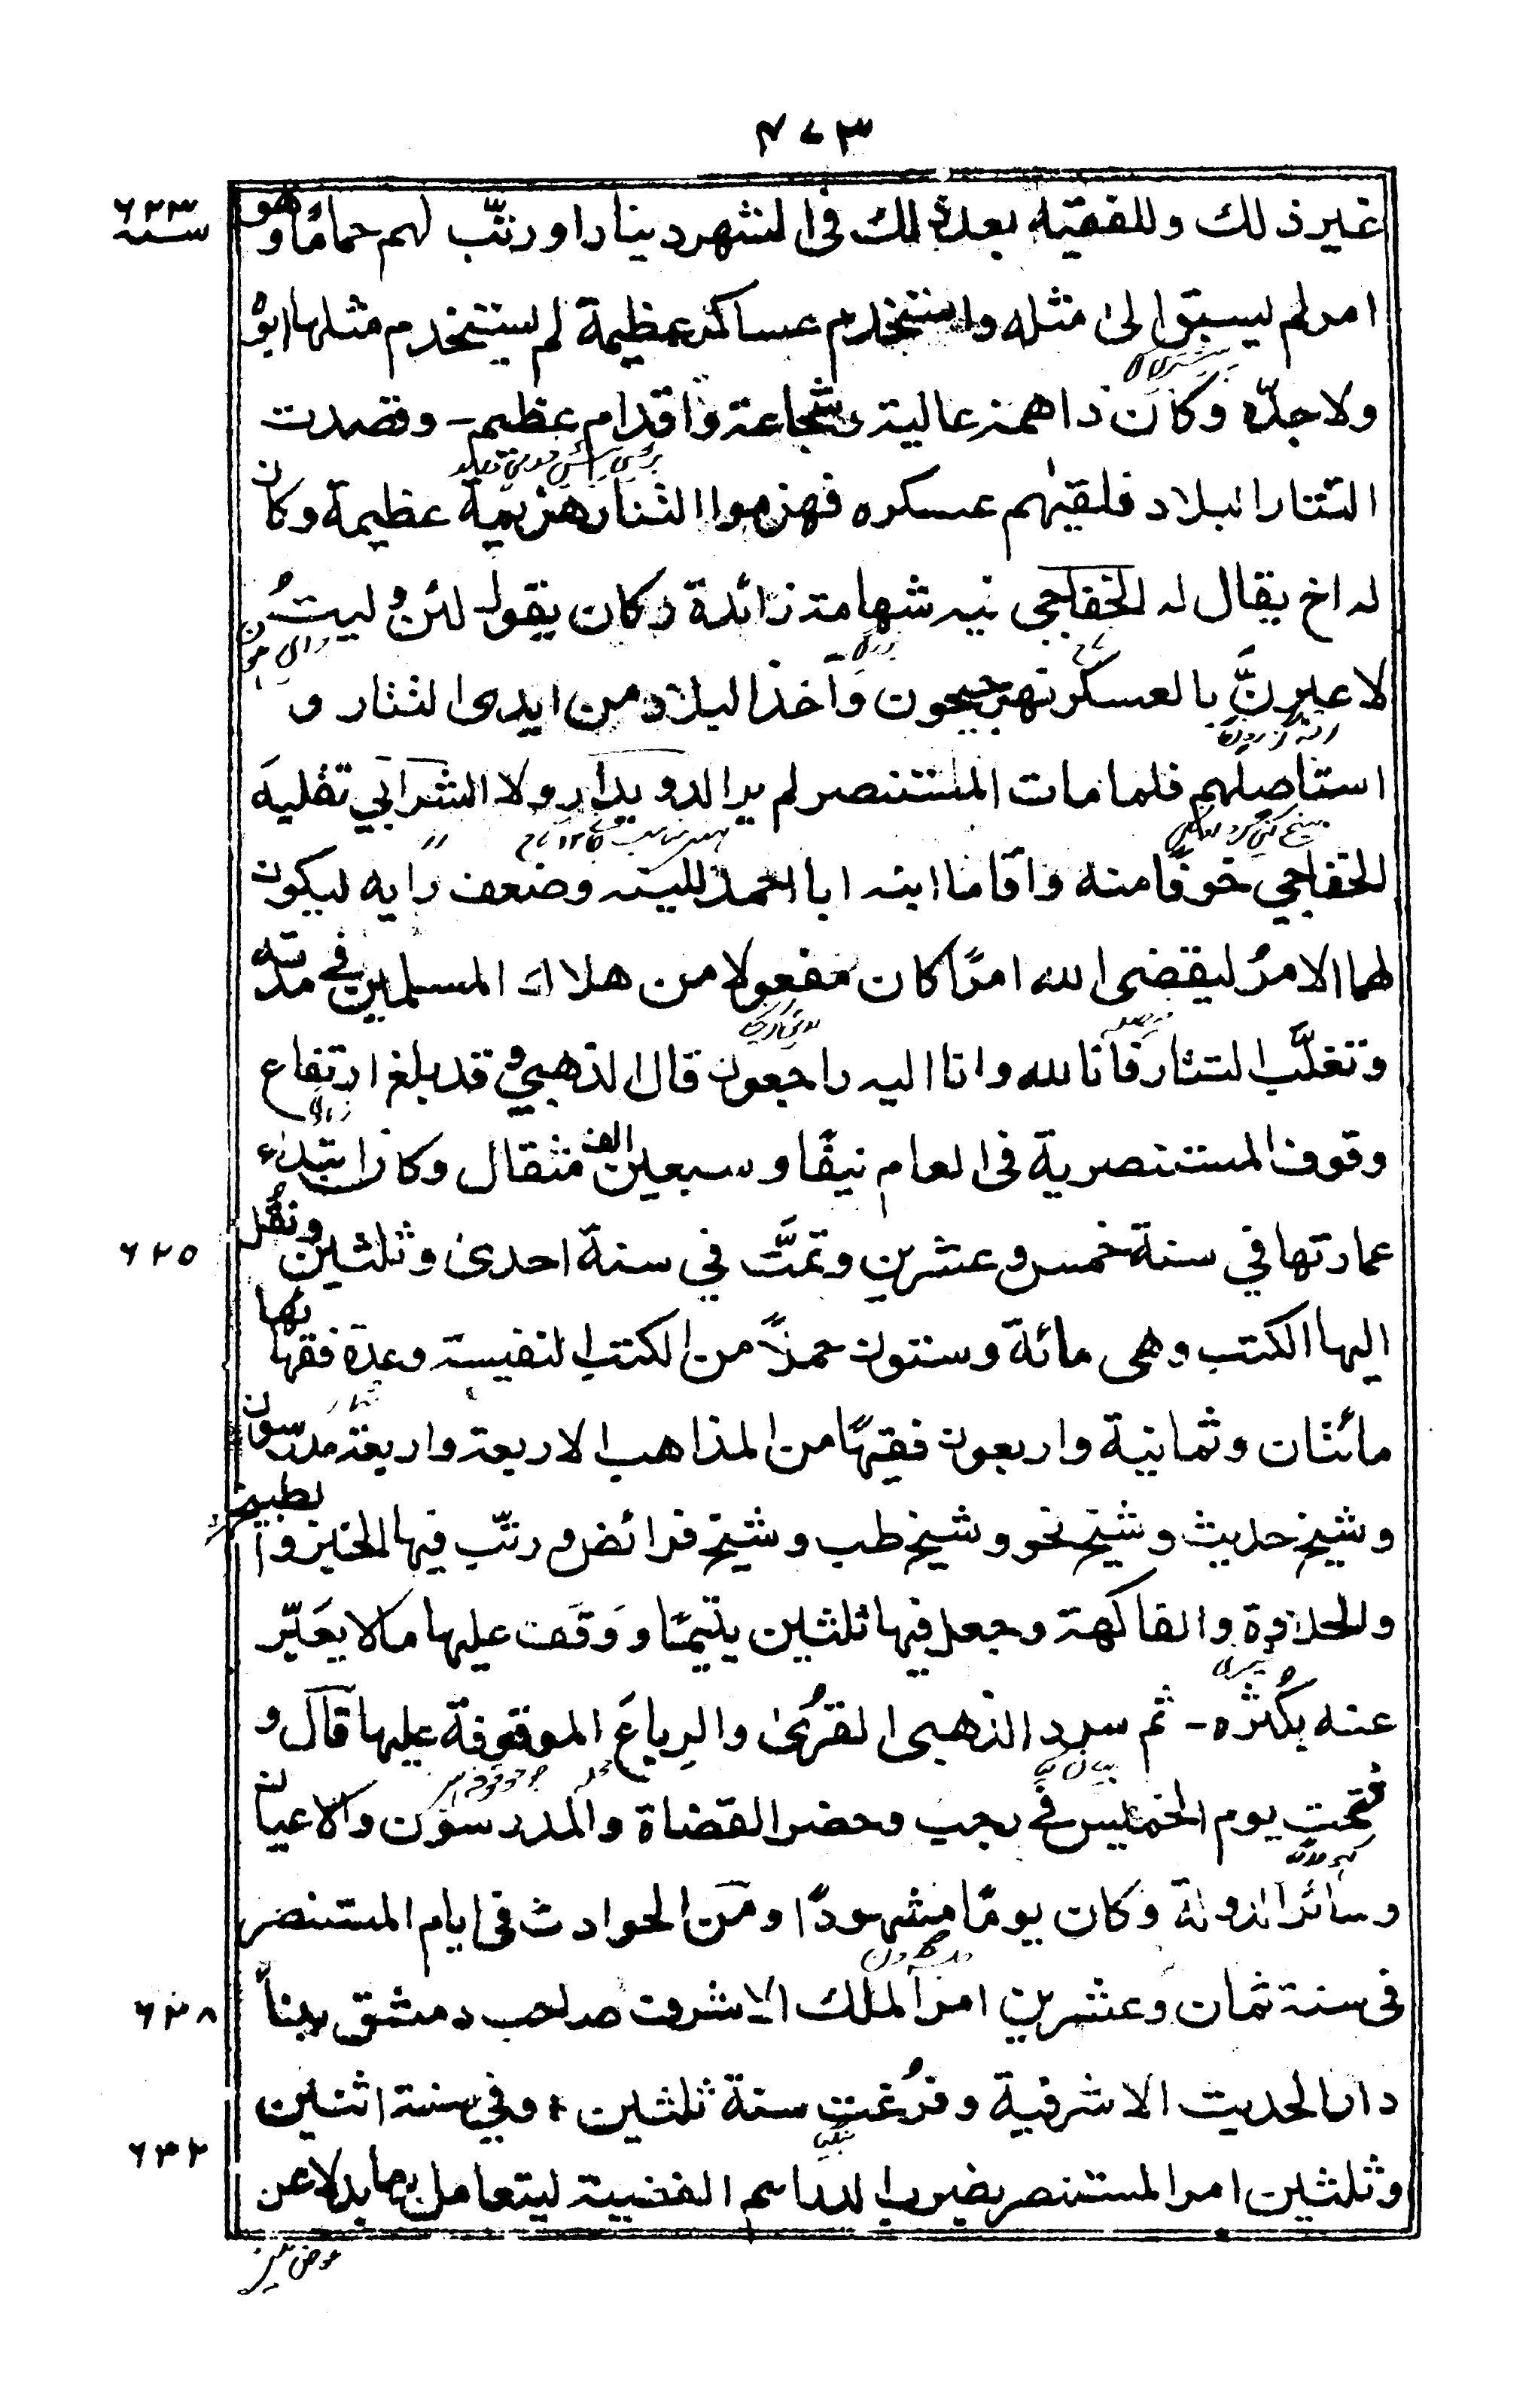 ۴۷۳
سنة ۶۳۳
غير ذلك وللفقيه بعد ذلك فى الشهر دينارا ورتّب لهم حمامًا وهو
امر لم يسبق الى مثله واستخدم عساكر عظيمة لم يستخدم مثلها ابوه
ولا جدّه وكان ذا همة عالية وشجاعة واقدام عظيم - وقصدت
التتار البلاد فلقيهم عسكره فهزموا التتار هزيمة عظيمة وكان
له اخ يقال له الخفاجى فيه شهامة زائدة وكان يقول لئن وليتُ
لاعبرنَّ بالعسكر نهر جيحون وآخذ البلاد من ايدى التتار و
استاصلهم فلما مات المستنصر لم ير الدويدار ولا الشرابي تقليد
الخفاجي خوفًا منه واقاما ابنه ابا احمد للينه وضعف رايه ليكون
لهما الامرُ ليقضى الله امرًا كان مفعولا من هلاك المسلمين في مدته
وتغلّب التتار فانا لله وانا اليه راجعون قال الذهبي وقد بلغ ارتفاع
وقوف المستنصرية فى العام نيفًا وسبعين الف مثقال وكان ابتداء
۶۲۵
عمارتها في سنة خمس وعشرين وتمّت في سنة احدى وثلثين ونُقل
اليها الكتب وهى مائة وستون حملًا من الكتب النفيسة وعدة فقهائها
مائتان وثمانية واربعون فقيهًا من المذاهب الاربعة واربعة مدرسون
وشيخ حديث وشيخ نحو وشيخ طب وشيخ فرائض ورتّب فيها الخبز والطبيخ
والحلاوة والفاكهة وجعل فيها ثلثين يتيمًا ووَقَف عليها مالا يعبّر
عنه بكُثْره - ثم سرد الذهبى القُرىٰ والرباع الموقوفة عليها قال و
فتحت يوم الخميس في رجب وحضر القضاة والمدرسون والاعيان
وسائر الدولة وكان يومًا مشهودًا ومن الحوادث فى ايام المستنصر
۶۲۸
فى سنة ثمان وعشرين امر الملك الاشرف صاحب دمشق ببناء
دار الحديث الاشرفية وفرُغت سنة ثلثين، وفي سنة اثنين
۶۳۲
وثلثين امر المستنصر بضرب الدراهم الفضية ليتعامل بها بدلا عن